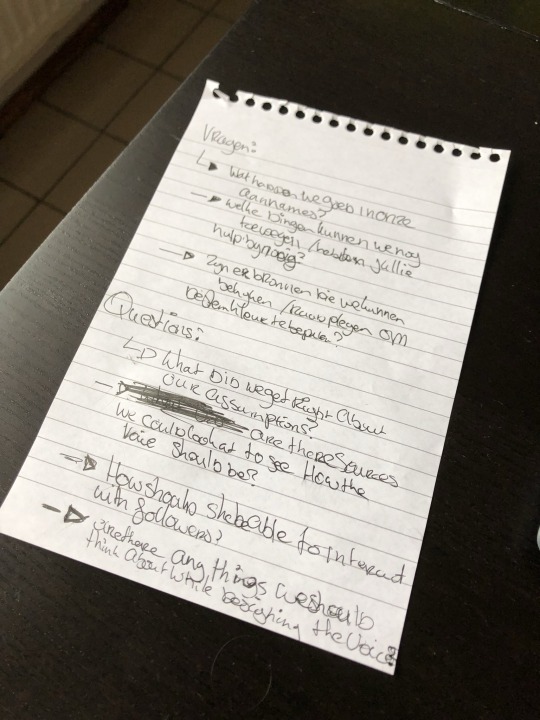 Vragen:
↳ Wat hadden we goed in onze
aannames?
→ welke Dingen kunnen we nog
toevoegen / hebben jullie
hulp bij nodig?
→ Zijn er bronnen die we kunnen
bekijken / Raadplegen om
te bepalen?
Questions:
↳ What Did we get Right About
our assumptions?
→ are there Sources
we could look at to see How the
Voice Should be?
→ How should she be able to interact
with followers?
→ are there any things we should
think About while Designing the Voice?